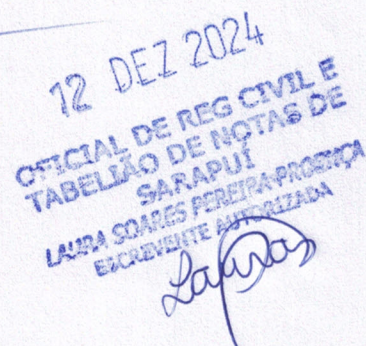 12 DEZ 2024
OFICIAL DE REG CIVIL E
TABELIÃO DE NOTAS DE
SARAPUÍ
LAURA SOARES PEREIRA PROENÇA
ESCREVENTE AUTORIZADA